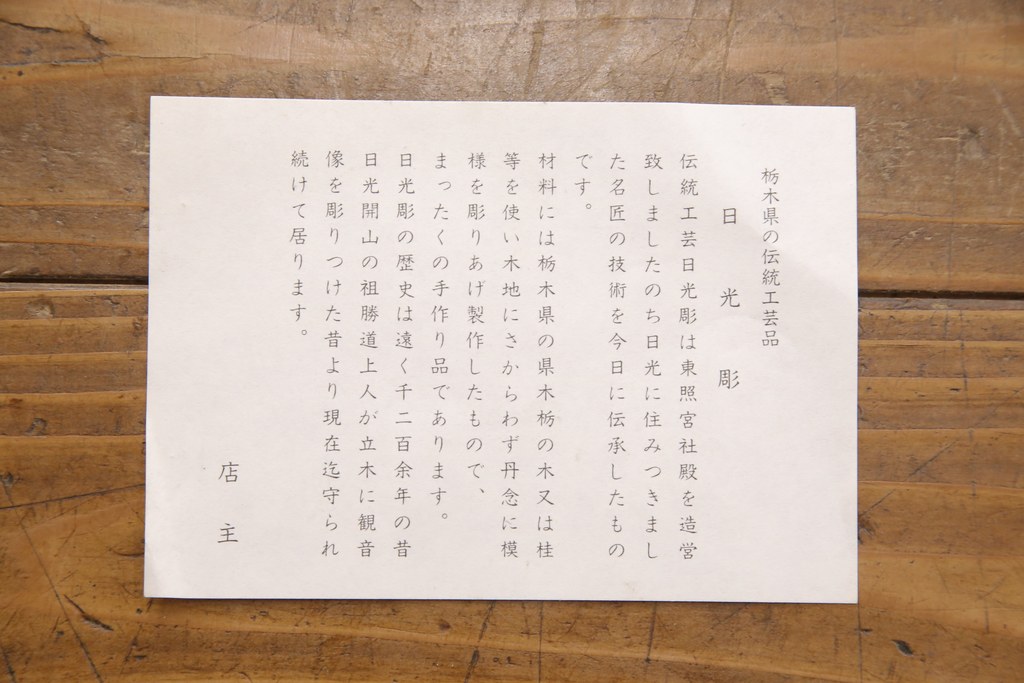 栃木県の伝統工芸品
日光彫
伝統工芸日光彫は東照宮社殿を造営
致しましたのち日光に住みつきまし
た名匠の技術を今日に伝承したもの
です。
材料には栃木県の県木栃の木又は桂
等を使い木地にさからわず丹念に模
様を彫りあげ製作したもので、
まったくの手作り品であります。
日光彫の歴史は遠く千二百余年の昔
日光開山の祖勝道上人が立木に観音
像を彫りつけた昔より現在迄守られ
続けて居ります。
店主